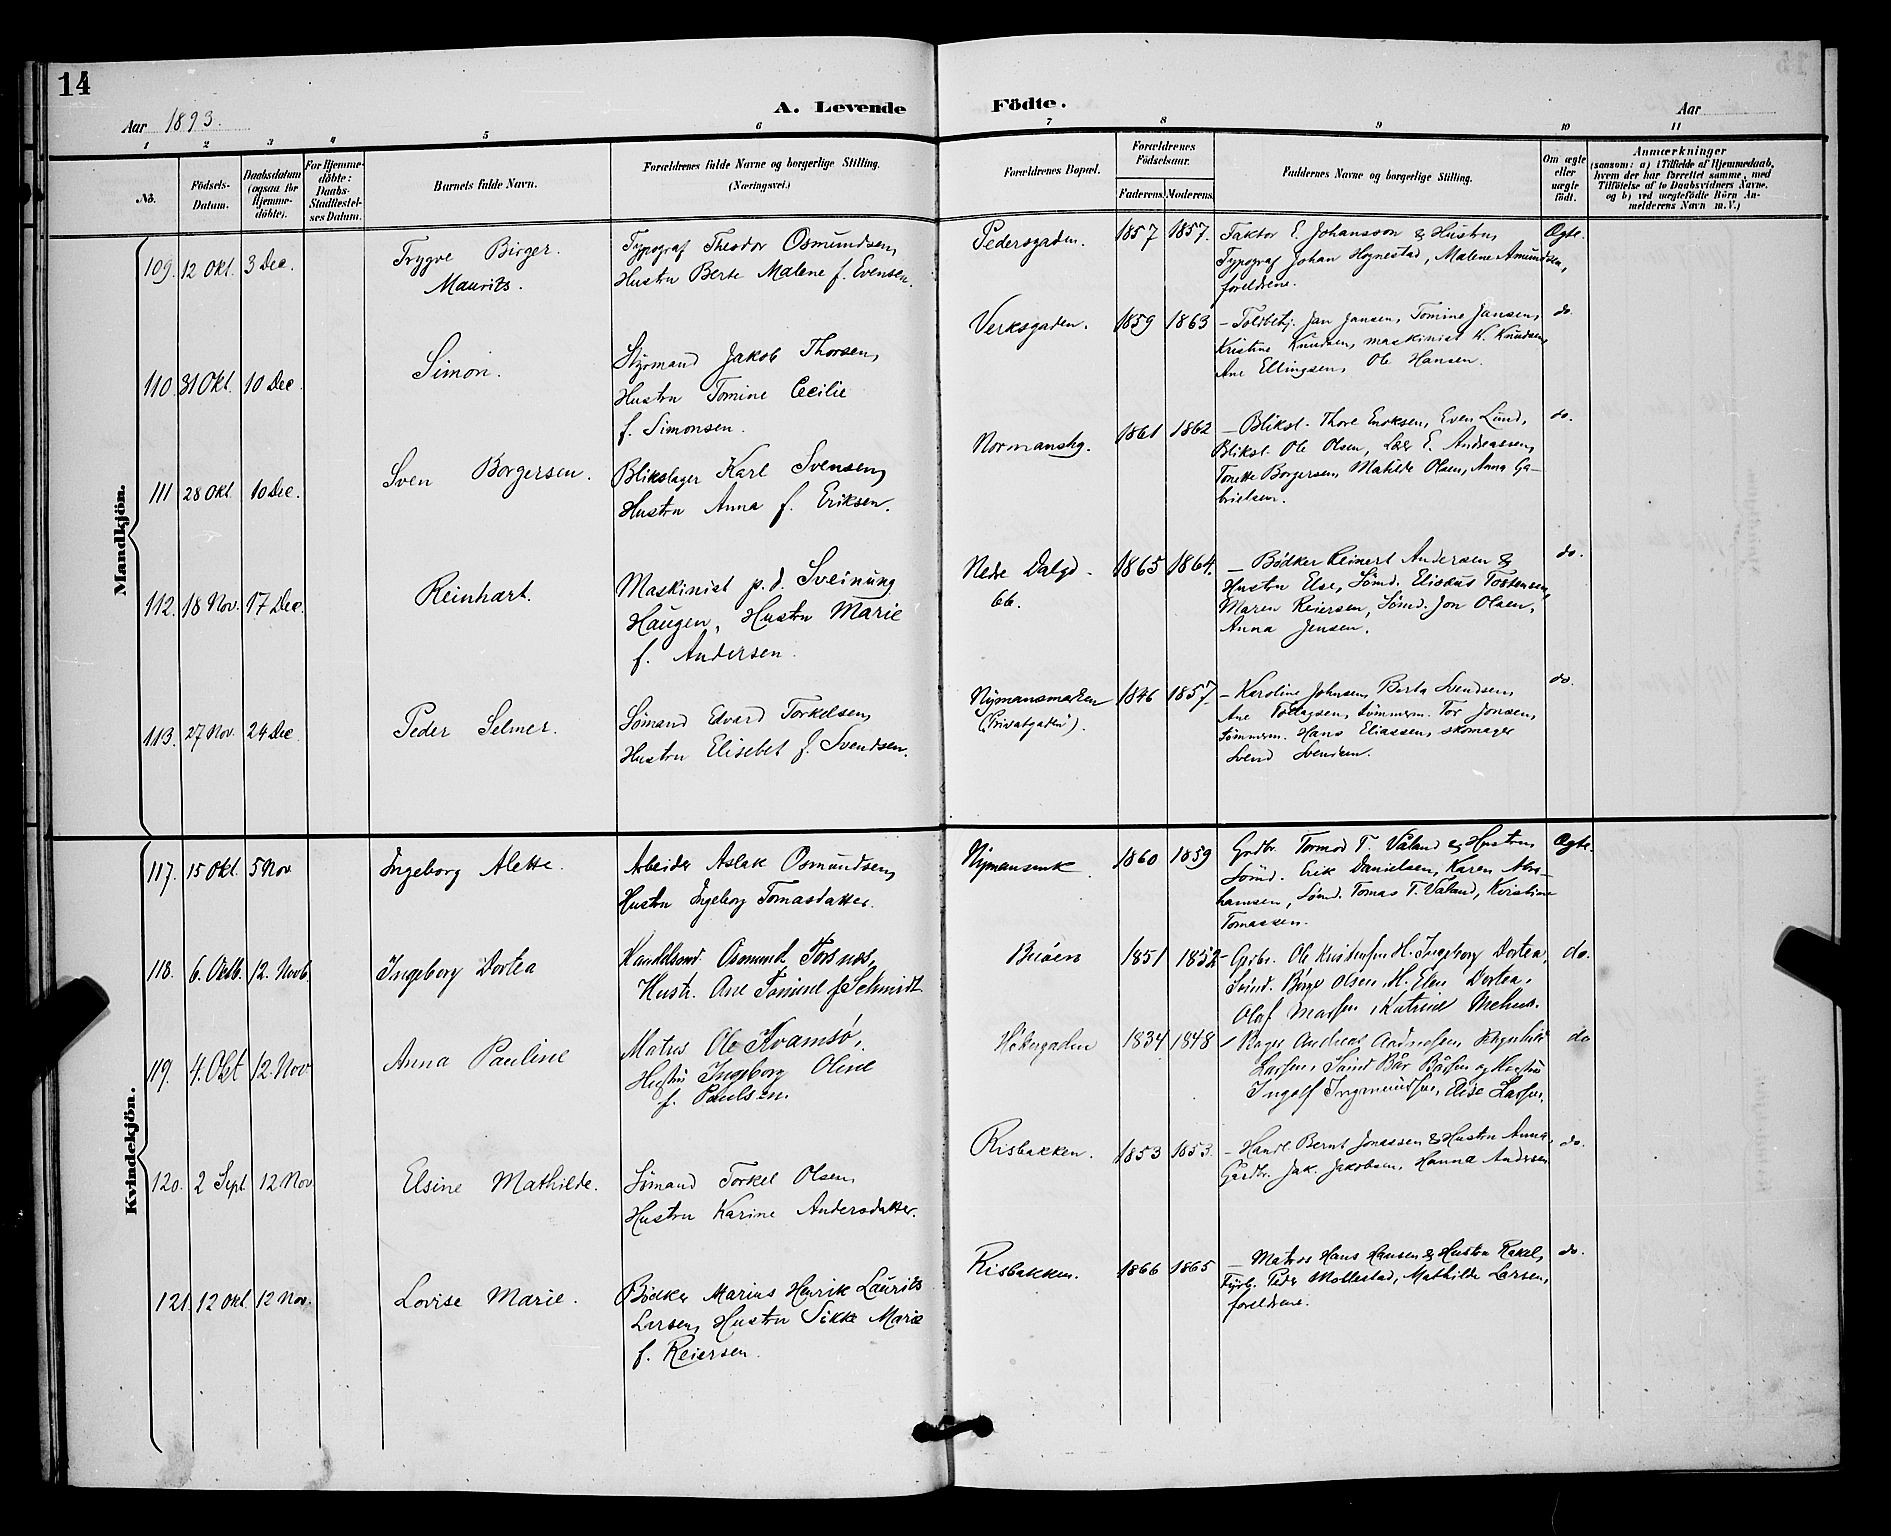 14
A. Levende Födte.
Aar 1893.
Aar
1 2 3 4 5 6 7 8 9 10 11
No.
Födsels-Datum.
Daabsdatum (ogsaa for Hjemme-döbte).
For Hjemme-döbte: Daabs-Stadfestel-ses Datum.
Barnets fulde Navn.
Forældrenes fulde Navne og borgerlige Stilling. (Næringsvei.)
Forældrenes Bopæl.
Forældrenes Födselsaar.
Faderens. Moderens.
Faddernes Navne og borgerlige Stilling.
Om ægte eller uægte födt.
Anmærkninger
(saasom: a) i Tilfælde af Hjemmedaab,
hvem der har forrettet samme, med
Tilföielse af to Daabsvidners Navne.
og b) ved uægtefödte Börn An-
melderens Navn m. V.)
Mandkjön.
109. 12 Okt. 3 Dec.
Trygve Birger
Maurits.
Typograf Theodor Osmundsen,
Hustru Berte Malene f. Evensen.
Pedersgaden.
1857 1857.
Faktor E. Johansson & Hustru,
Typograf Johan Hognestad, Malene Amundsen,
foreldrene.
Ægte.
110. 31 Okt. 10 Dec.
Simon.
Styrmand Jakob Thorsen,
Hustru Tomine Cecilie
f. Simonsen.
Verksgaden.
1859 1863
– Toldbetj. Jan Jansen, Tomine Jansen,
Kristine Knudsen, maskinist K. Knudsen,
Ane Ellingsen, Ole Hansen.
do.
111 28 Okt. 10 Dec.
Sven Borgersen.
Blikslager Karl Svensen,
Hustru Anna f. Eriksen.
Normanstg.
1861 1862
– Bliksl. Thore Eriksen, Even Lund,
Bliksl. Ole Olsen, Lær E. Andreassen,
Tonette Borgersen, Matilde Olsen, Anna Ga-
brielsen.
do.
112. 18 Nov. 17 Dec.
Reinhart.
Maskinist p. d. Sveinung
Haugen, Hustru Marie
f. Andersen.
Nedre Dalgd.
66.
1865 1864.
– Bødker Reinert Andersen &
Hustru Else, Sömd. Eliseus Tostensen,
Maren Reiersen, Sömd. Jon Olsen,
Anna Jensen.
do.
113. 27 Nov. 24 Dec.
Peder Selmer.
Sömand Edvard Torkelsen,
Hustru Elisebet f. Svendsen.
Nymansmarken
(Privatgaden).
1846 1857.
– Karoline Johnsen, Berta Svendsen,
Ane tömmerm. Tor Jonsen,
tömmerm. Hans Eliassen, skomager
Svend Svendsen.
do.
Kvindekjön.
117. 15 Okt. 5 Nov
Ingeborg Alette.
Arbeider Aslak Osmundsen,
Hustru Ingeborg Tomasdatter.
Nymansmk.
1860 1859
Grdbr. Tormod T. Våland & Hustru,
Sömd. Erik Danielsen, Karen Abra-
hamsen, Sömd. Tomas T. Våland, Kristine
Tomassen.
Ægte.
118. 6. Oktb. 12. Novb.
Ingeborg Dortea
Handelsmd. Osmund
Hustr. Ane Tomine f Schmidt.
Buöen
1851 1852
– Gaardbr. Ole Kristensen H. Ingeborg Dortea,
Sömd. Børge Olsen, H. Elen Dortea,
Olaf Katrine
do.
119. 4. Okt 12. Nov
Anna Pauline
Matros Ole Kvamsö,
Hustru Ingeborg Oline
f. Paulsen.
Hökergaden
1834 1848
Andreas Ragnhild
Larsen, Sömd Bår Bårsen og Hustru
Ingolf Ingmundsen, Elise Larsen.
do
120. 2 Sept 12 Nov
Elsine Mathilde.
Sömand Torkel Olsen,
Hustru Karine Andersdatter.
Risbakken.
1853 1853.
– Handl. Bernt Jonassen & Hustru Anna,
Gårdbr. Jak. Jakobsen, Hanna Andersen
do.
121. 12 Okt. 12 Nov.
Lovise Marie.
Bödker Marius Henrik Laurits
Larsen, Hustru Sikke Marie
f. Reiersen.
Risbakken.
1866 1865
– Matros Hans Hansen & Hustru Rakel,
Fyrb. Peder Mollestad, Mathilde Larsen,
foreldrene.
do.